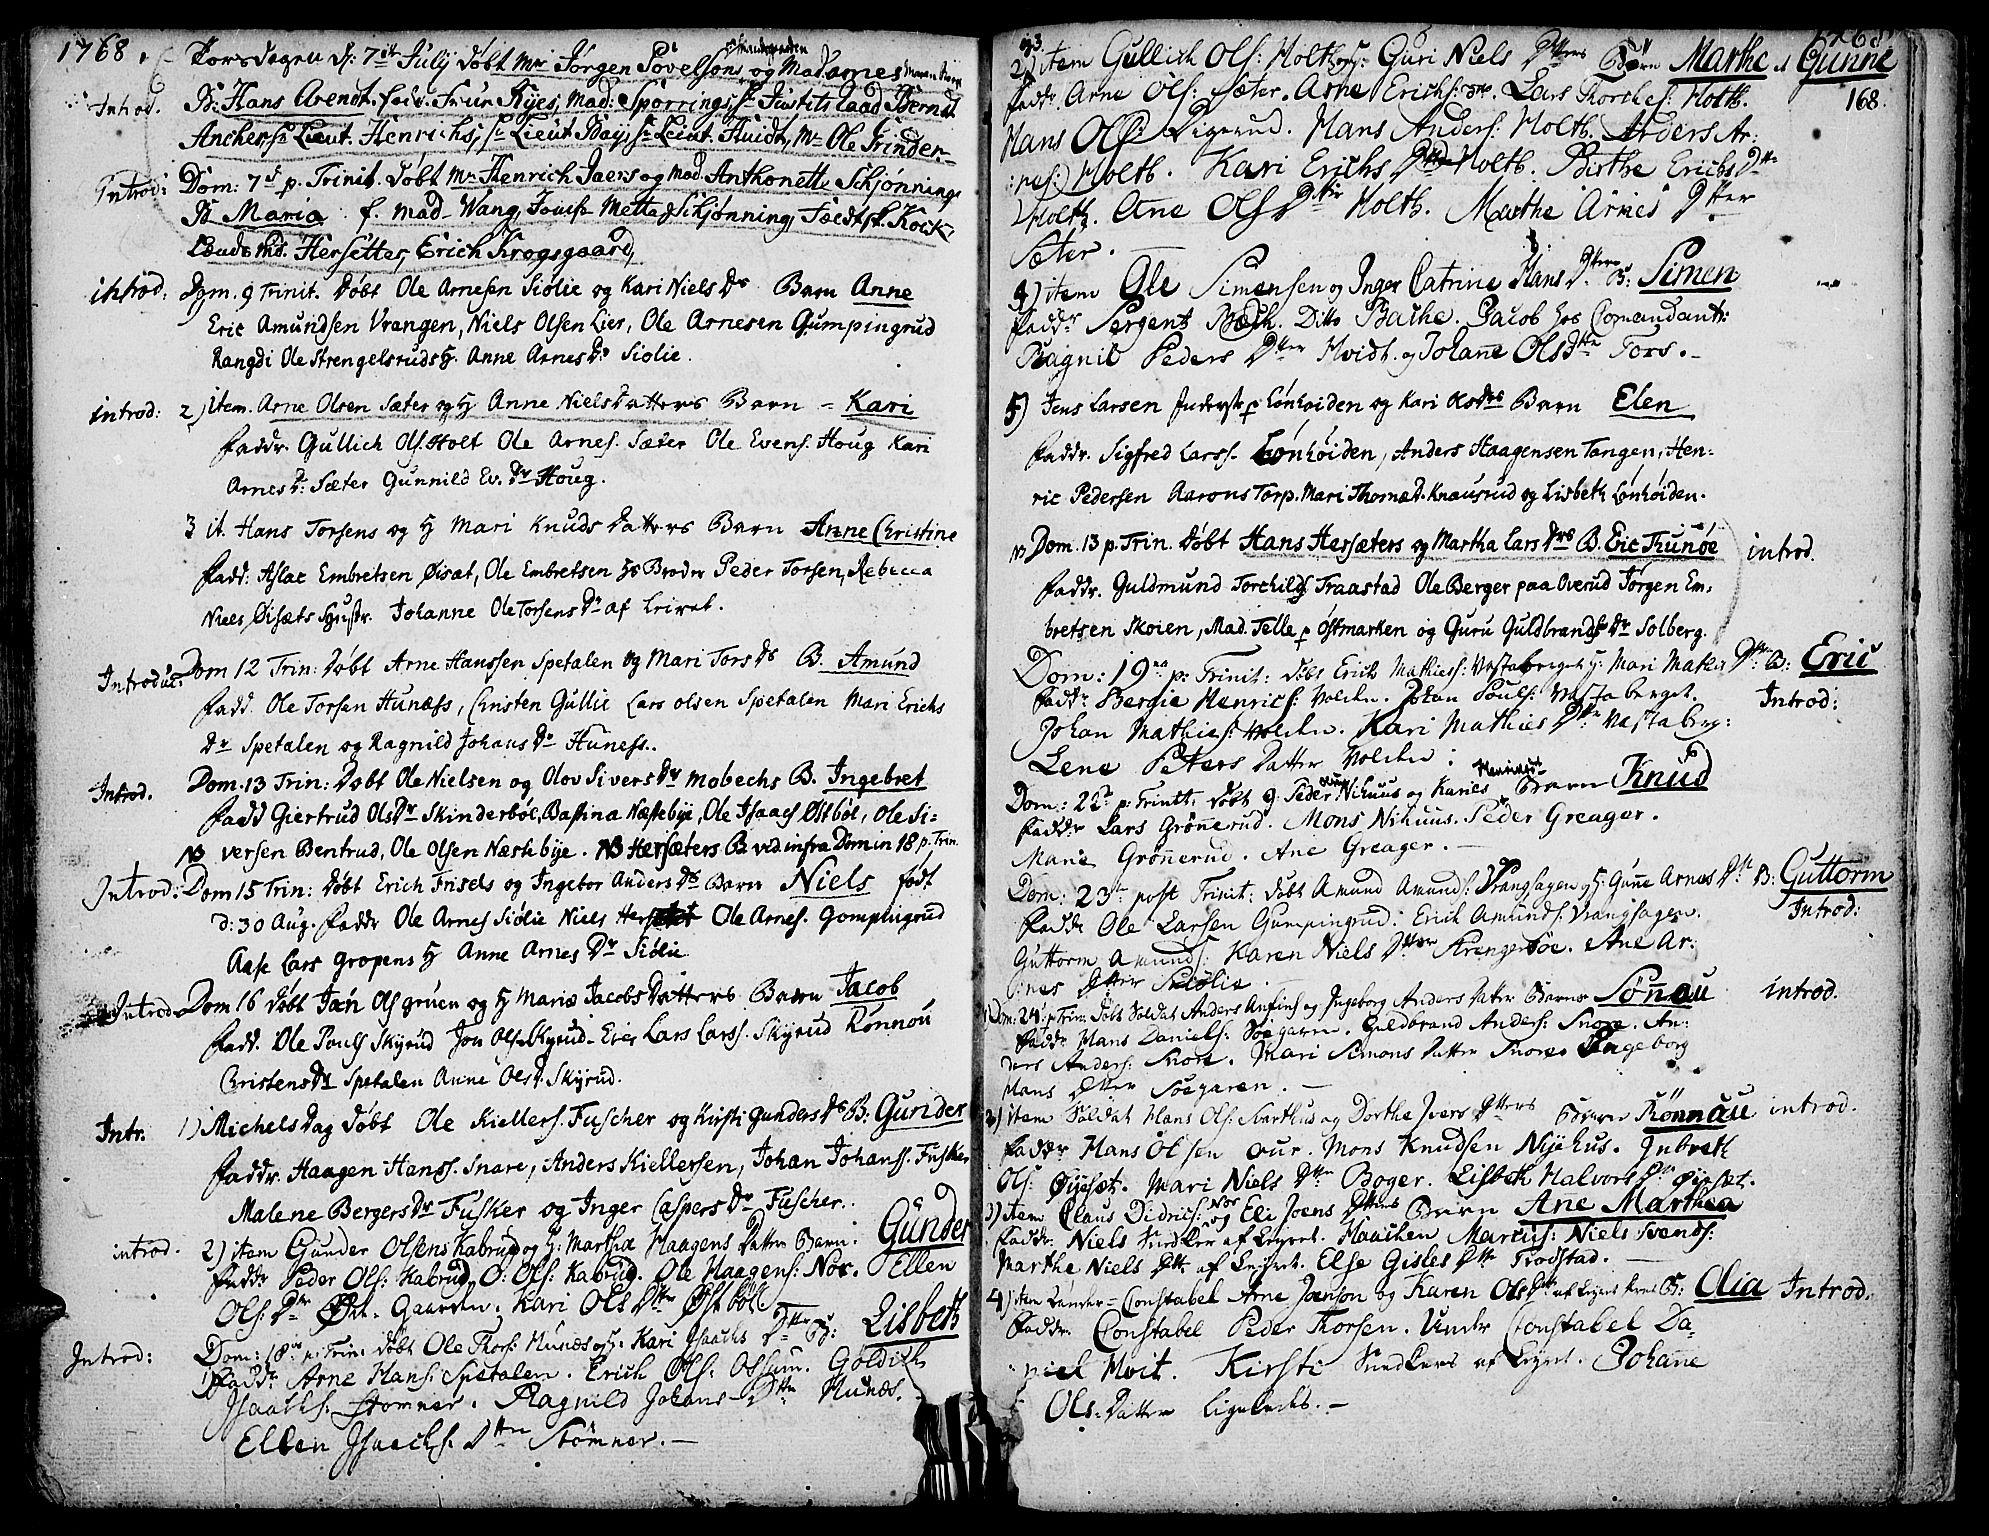 1768.
Torsdagen d: 7de Julij Døbt Mr Jørgen Povelsens og Madames
Introd. B: Hans Arendt. fadr. Frue Ryes, Mad: Spörring, Justits Raad Bernt
Ancher, Lieut. Henrichs, Lieut Bays Leut. Huidt, Mr Ole Trinder
Introd: Dom: 7de p. Trinit. Døbt Mr Henrich Jaers og Mad. Anthonette Schjønnings
B Maria f. Mad Wang, Jomfr Mette Schjønning,
Hersetter, Erich Krogsgaard,
introd: Dom. 9 Trinit. Døbt Ole Arnesen Siölie og Kari Niels Dr Barn Anne
Eric Amundsen Vrangen, Niels Olsen Lier, Ole Arnesen Gumpingrud
Rangdi Ole Strengelsruds H. Anne Arnes Dr Siolie.
introd: 2) item. Arne Olsen Sæter og H Anne Niels Datters Barn - Kari
Faddr. Gullich Ols. Holt Ole Arnes. Sæter Ole Evens. Houg Kari
Arnes D: Sæter Gunnild Ev. Dr Houg.
3 it. Hans Torsens og H Mari Knuds Datters Barn Anne Christine
Fadd: Aslac Embretsen Øisæt, Ole Embretsen Hs Broder Peder Torsen, Rebecca
Niels Øisæts Hustr. Johanne Ole Torsens Dr af Leiret.
Introduc: Dom 12 Trin: Døbt Arne Hanssen Spetalen og Mari Tors Ds B. Amund
Fadd. Ole Torsen Hunæss, Christen Gullie Lars Olsen Spetalen Mari Erichs
Dr Spetalen og Ragnild Johans Dr Huness.
Introd. Dom. 13 Trin: Døbt Ole Nielsen og Olov Sivers Dr Mobechs B. Ingebret
Fadd Giertrud Ols Dr Skinderböl, Bastina Næstebye, Ole Isaach Östböl, Ole Si-
NB versen Bentrud, Ole Olsen Næstebye. NB Hersæters B vid infra Domin 18 p. Trin.
Introd: Dom 15 Trin: Døbt Erich Frisels og Ingebor Anders Ds Barn Niels født
d: 30 Aug. Faddr Ole Arnes Siölie Niels Ole Arnes. Gompingrud
Aase Lars Gropens H Anne Arnes Dr Siölie
Introd. Dom 16 Døbt Jan Ols gruen og H Mariæ Jacobs Datters Barn Jacob
Fadd. Ole Pouls Skyrud Jon Ols Skyrud Lars Larss. Skyrud Ronnou
Christens Dr Spetalen Anne Ols D. Skyrud.
Intr. 1) Michels Dag Døbt Ole Kiellers. Fuscher og Kirsti Gunders Ds B: Gunder
Faddr. Haagen Hanss. Snare, Anders Kiellersen, Johan Johanss. Fusker
Malene Bergers Dr Fusker og Inger Caspers Dr Fuscher.
introd. 2) item Gunder Olsens Kabrud og H. Martha Haagens Datters Barn: Gunder
Faddr Peder Ols: Kabrud, O: Ols: Kabrud. Ole Haagens: Nor. Ellen
Ols: Dr Gaarden. Kari Ols Dtter Østböl
Introd: Dom: 18 p: Trin: døbt Ole Thors: Hunæs og H. Kari Isachs Dtter B: Lisbeth
Faddr Arne Hans: Spetalen. Erich Ols: Ossum. Goldich
Isaachs: Stomner. Ragnild Johans Dtter Hunæs.
Ellen Isaachs. Dtter Stömner.
1768
2) item Gullich Ols: Holts og H: Guri Niels Dtters Børn Marthe et Gunne
168.
Faddr Arne Ols: Sæter. Arne Erichs: Lars Thorches: Holtb.
Hans Ols: Ligerud. Hans Anders: Holtb. Anders Ar:
nes: Holtb. Kari Erichs Dtter Holtb. Birthe Erichs Dtter
Holtb. Ane Ols Dtter Holtb. Marthe Arnes Dtter
Sæter.
4) item Ole Simensen og Inger Catrine Hans Dtters B: Simen
Faddr Sergent Ditto Bache. Jacob hos Comandant:
Bagnil Peders Dtter Hvidt. og Johane Ols Dtter Fors.
5) Jens Larsen Lönhöiden og Kari Ols Drs Barn Elen
Faddr. Sigfred Larss. Lönhöiden, Anders Haagensen Tangen, Hen-
ric Pedersen Aarons Torp. Mari Thomæ D. Knausrud og Lisbeth Lönhöiden.
Dom. 13 p. Trin. Døbt Hans Hersæters og Martha Lars Drs B. Eric Trunöe introd.
Faddr. Guldmund Torchilds Traastad Ole Berger paa Overud Jørgen Em-
bretsen Skoien, Mad. Telle p Østmarken og Guru Guldbrands Dr Solberg.
Dom: 19na p: Trinit: døbt Erich Mathies: Vestaberget H: Mari Mathis Dtters B: Eric
Faddr Bergie Henrics: Holchn. Johan Pouls: Vestaberget. Introd:
Johan Mathies: Holchn. Kari Mathies Dtter Vestaberg:
Lene Peters Datter Holchn:
Dom: 22de p: Trinit: døbt Peder Nihuus og Karies Barn Knud
Faddr Lars Grönnerud. Mons Nihuus. Peder Greager.
Marie Grönnerud. Ane Greager.
Dom: 23de post Trinit: døbt Amund Amunds: Vranghagen og H: Gune Arnes Dtt B: Guttorm
Faddr Ole Larsen Gumpingrud. Erich Amunds: Vranghagen. Introd:
Guttorm Amunds: Karen Niels Dtter Ane Ar:
nes Dtter Siölie.
1) Dom: 24: p Trin: Døbt Soldat Anders Anfins og Ingeborg Anders Datter Barn Sönau introd.
Faddr Hans Daniels: Söegaren. Guldbrand Anders: Snore. An:
ders Anders: Snore. Mari Simons Datter Snore Ingeborg
Hans Dtter Söegaren.
2) item Soldat Hans Ols: Svarthus og Dorthe Ivers Dtters Barn Rönnau introd.
Faddr Hans Olsen Aur. Mons Knudsen Nyehus. Inbreth
Ols: Øyesæt. Mari Niels Dtter Boger. Lisbeth Halvors Dtr Øiesæt.
3) item Claus Didrics: Nor og Eli Joens Dtters Barn Ane Marthea
Faddr Niels af Leyret. Haachen Marcus: Niels Svends:
Marthe Niels Dtr af Leiret. Else Gisles Dtr Trodstad.
4) item Under-Constabel Arne Joenson og Karen Ols Dtr af Leyret B: Olia Introd.
Faddr. Constabel Peder Thorsen. Under Constabel Da-
niel Hvit. Kirsti af Leyret. Johane
Ols: Datter